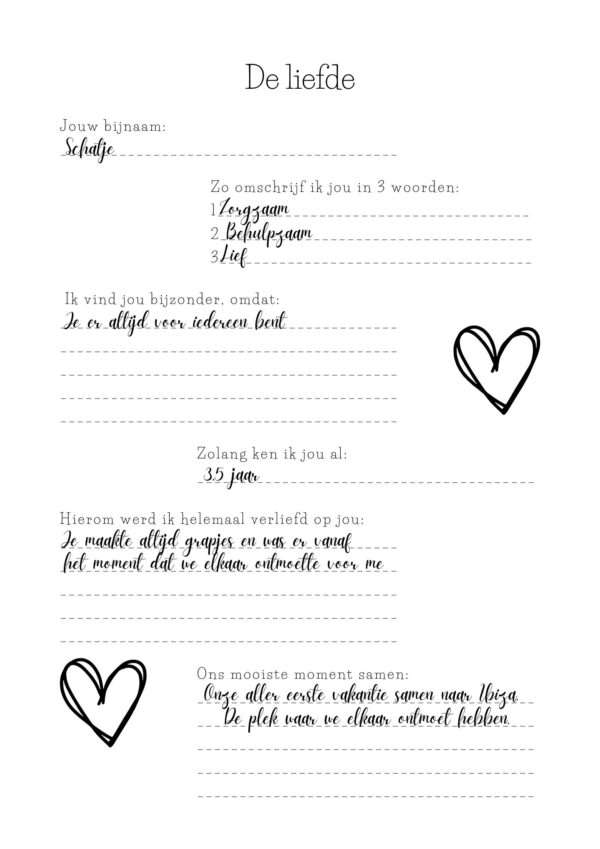 De liefde
Jouw bijnaam:
Schatje
Zo omschrijf ik jou in 3 woorden:
1 Zorgzaam
2 Behulpzaam
3 Lief
Ik vind jou bijzonder, omdat:
Je er altijd voor iedereen bent
Zolang ken ik jou al:
3.5 jaar
Hierom werd ik helemaal verliefd op jou:
Je maakte altijd grapjes en was er vanaf
het moment dat we elkaar ontmoette voor me
Ons mooiste moment samen:
Onze aller eerste vakantie samen naar Ibiza.
De plek waar we elkaar ontmoet hebben.